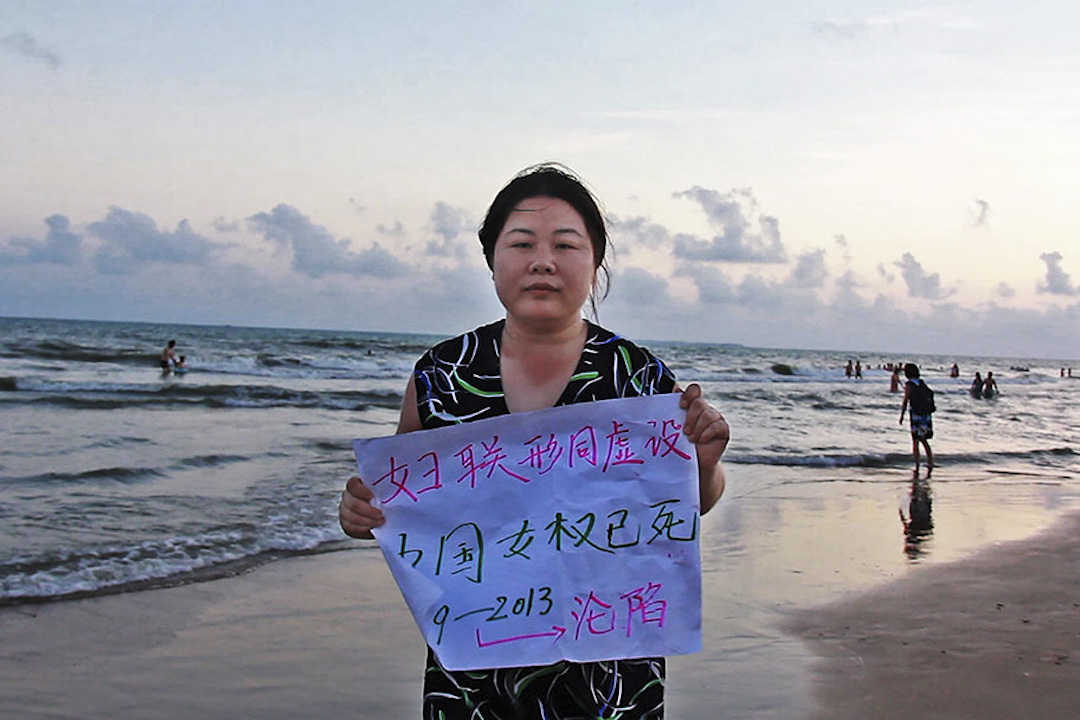 妇联形同虚设
国女权已死
9—2013 沦陷